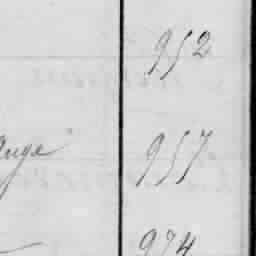 952
ange 957
974